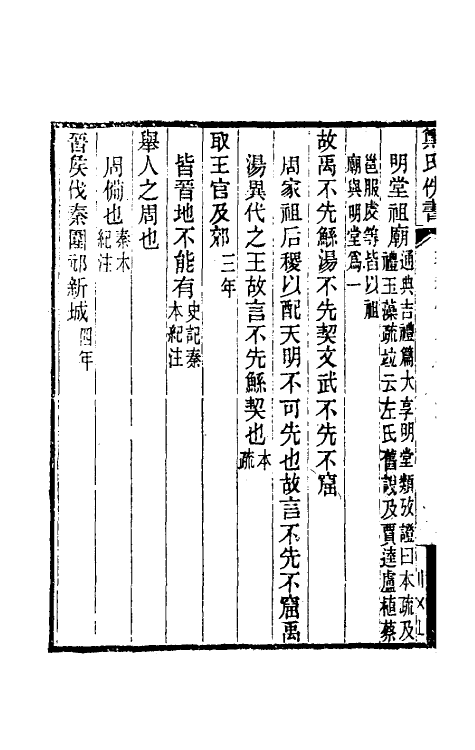 明堂祖廟通典吉禮篇大享明堂類攷證曰本疏及
禮玉藻疏竝云左氏舊說及賈逵盧植蔡
邕服虔等皆以祖
廟與明堂爲一
故禹不先鯀湯不先契文武不先不窟
周家祖后稷以配天明不可先也故言不先不窟禹
湯異代之王故言不先鯀契也本
疏
取王官及郊三年
皆晉地不能有史記秦
本紀注
舉人之周也
周僃也秦本
紀注
晉矦伐秦圍䢴新城四年